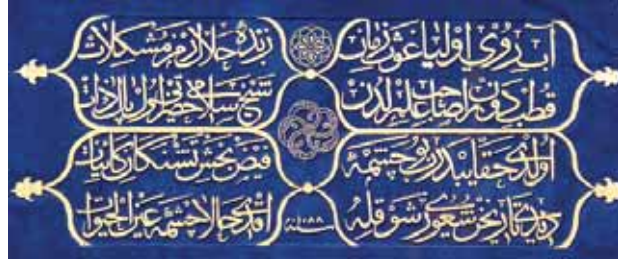 آب روی اولیا غوث زمان
زبده حلال رمز مشکلات
قطب دوران صاحب علم لدن
شیخ سلامی حضرتی اول پاک ذات
اولدی حقا بو چشمه
فیض بخش تشنکان کائنات
دیدی تاریخن شعوری شوقله
اقدی حالا چشمه عین الحیات
سنه ۱۰۸۸